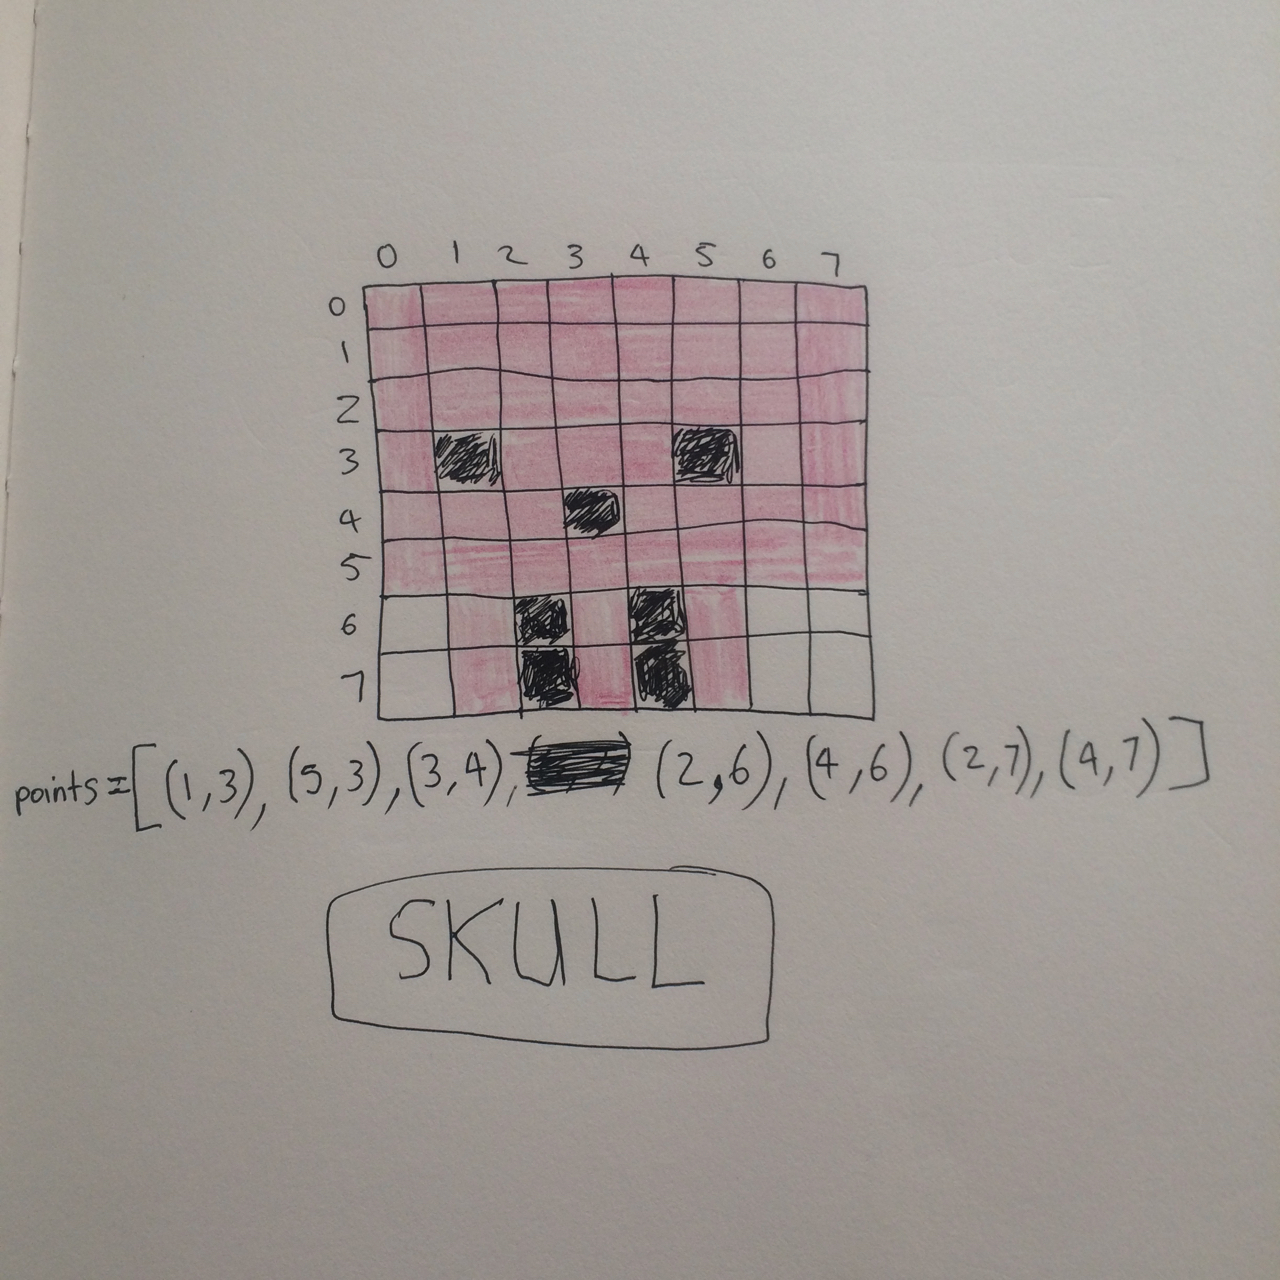 0 1 2 3 4 5 6 7
0
1
2
3
4
5
6
7
points=[(1,3), (5,3),(3,4), (2,6), (4,6), (2,7), (4,7)]
SKULL